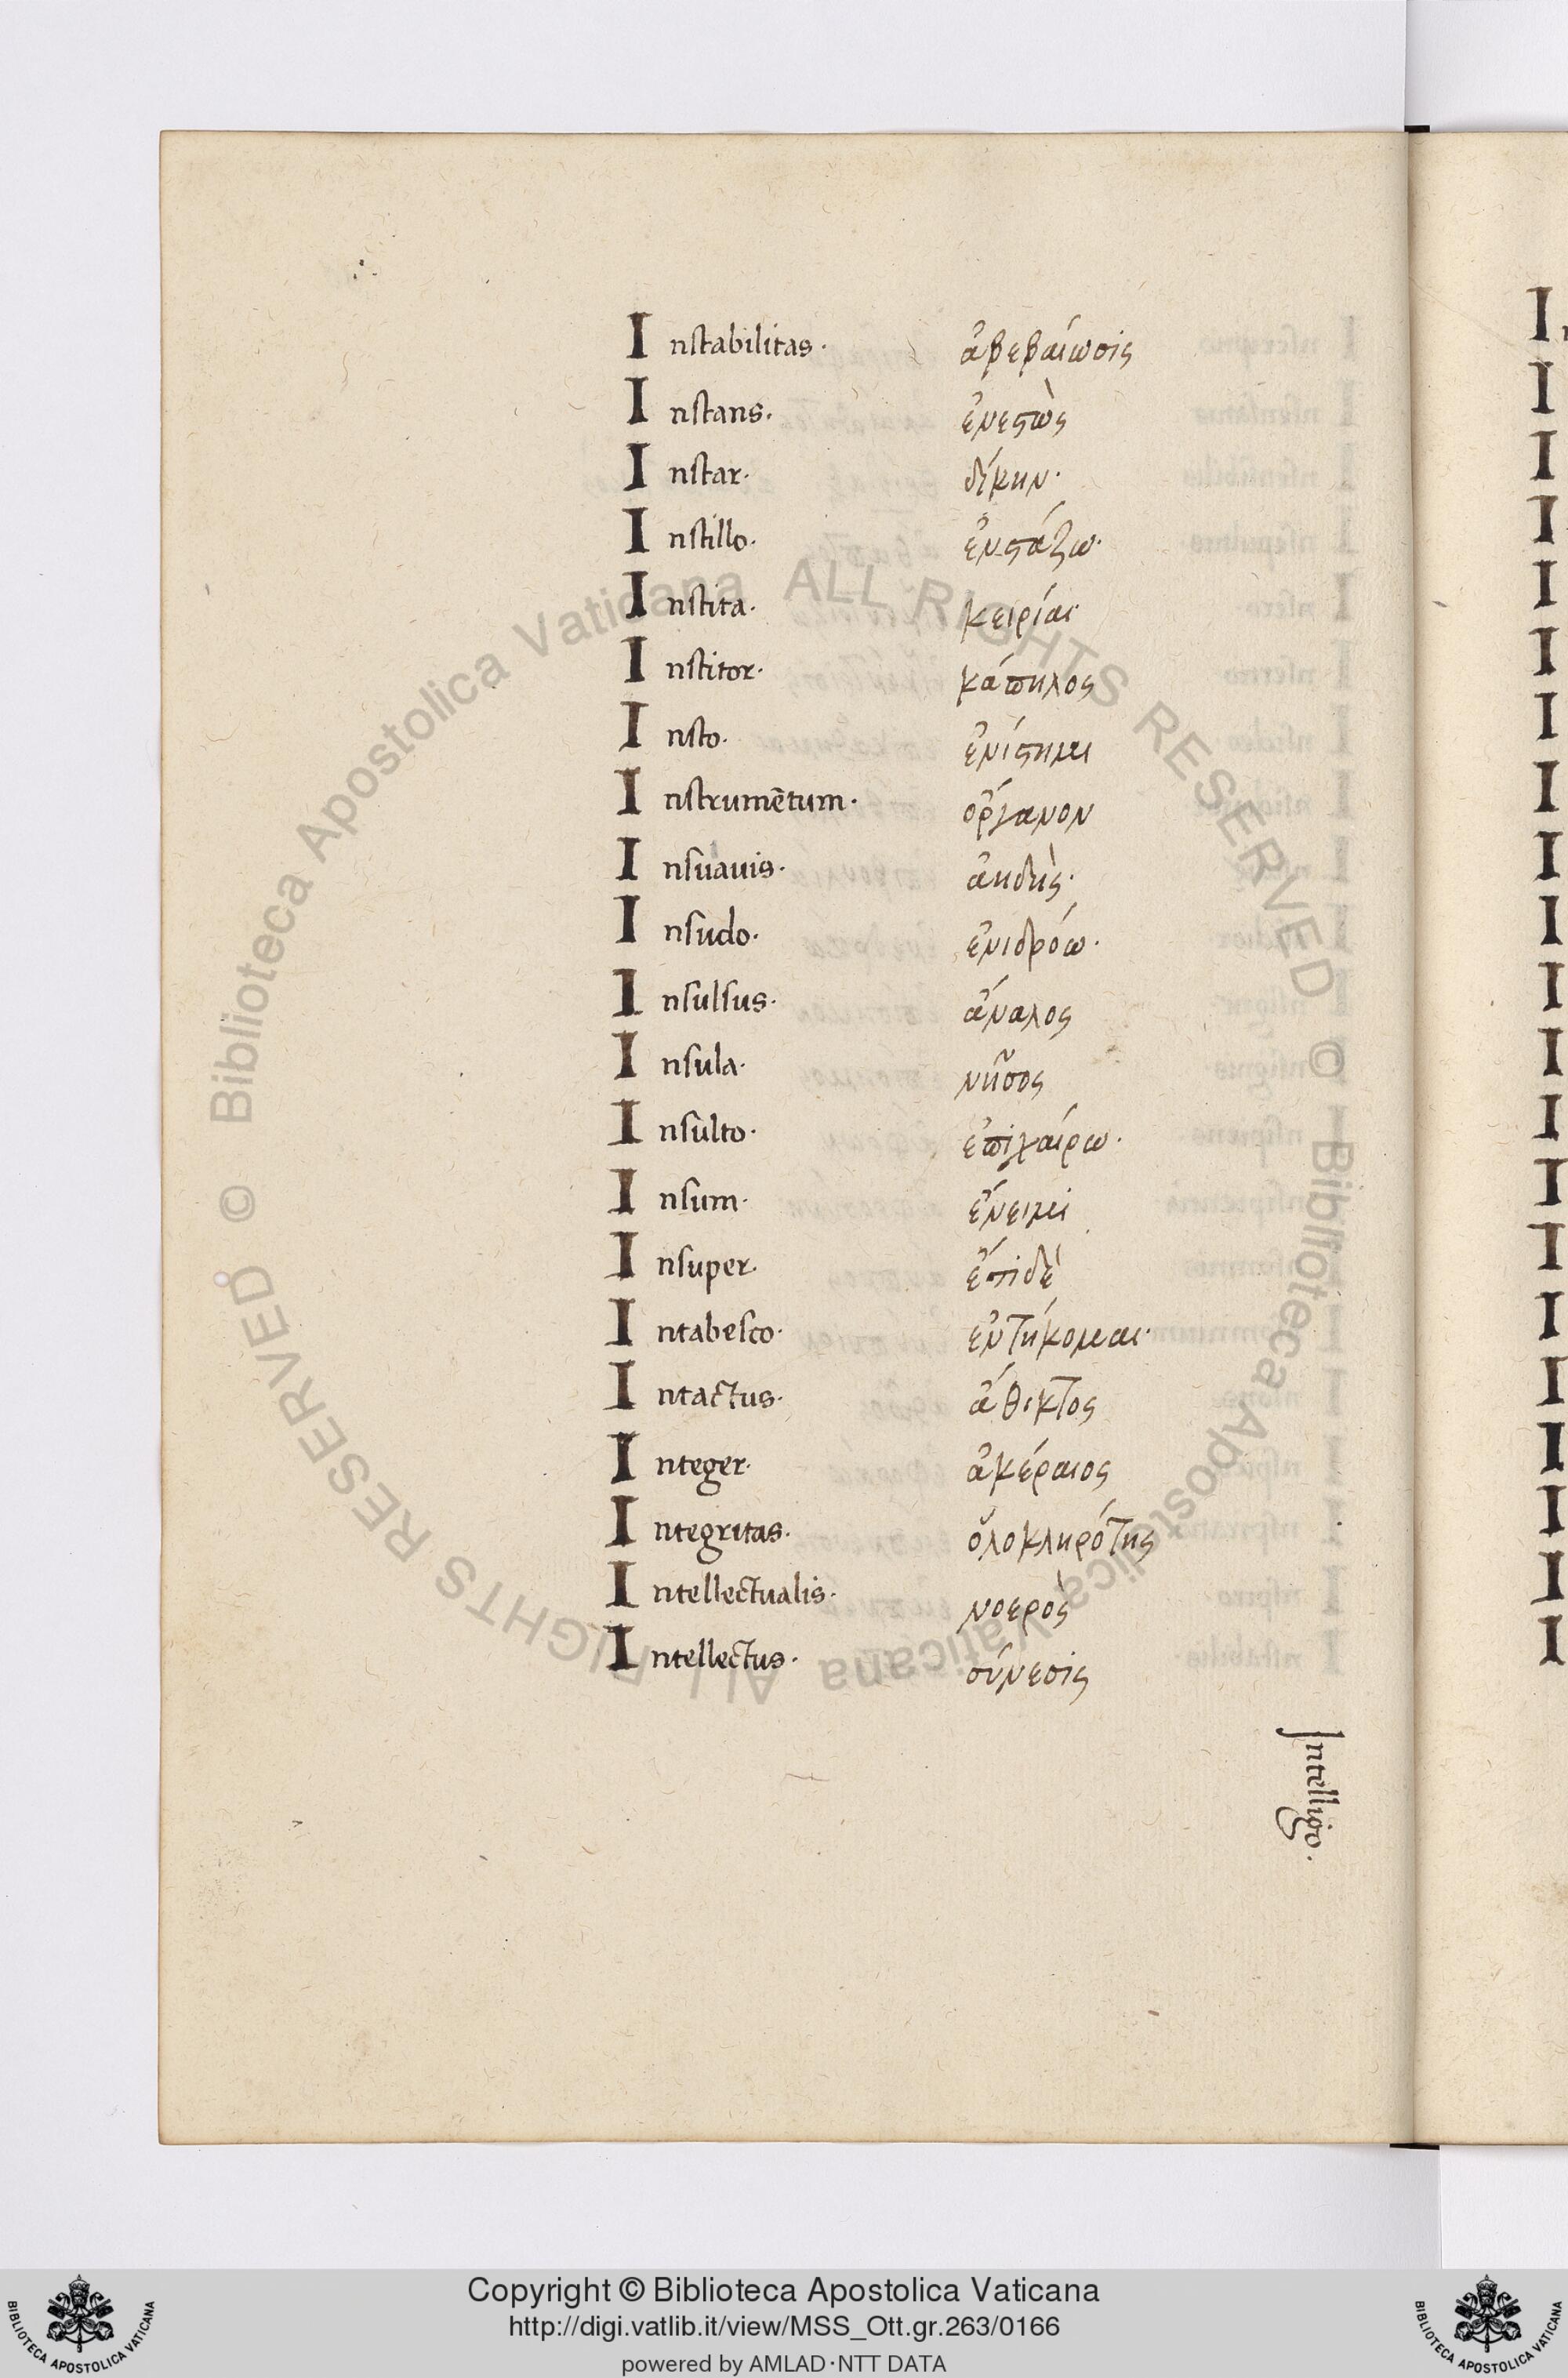 Instabilitas. ἀβεβαίωσις
Instans. ἐνεστὼς
Instar. δίκην.
Instillo. ἐνστάζω.
Instita. κειρίαι
Institor. κάπηλος
Insto. ἐνίστημι
Instrumētum. ὄργανον
Insuauis. ἀηδὴς.
Insudo. ἐνιδρόω.
Insulsus. ἄναλος
Insula. νῆσος
Insulto. ἐπιχαίρω.
Insum. ἔνειμι
Insuper. ἔπιδὲ
Intabesco. ἐντήκομαι.
Intactus. ἄθικτος
Integer. ἀκέραιος
Integritas. ὁλοκληρότης
Intellectualis. νοερὸς
Intellectus. σύνεσις
Intelligo.
Copyright © Biblioteca Apostolica Vaticana
http://digi.vatlib.it/view/MSS_Ott.gr.263/0166
powered by AMLAD·NTT DATA
© Biblioteca Apostolica Vaticana ALL RIGHTS RESERVED
© Biblioteca Apostolica Vaticana ALL RIGHTS RESERVED
BIBLIOTECA APOSTOLICA VATICANA
BIBLIOTECA APOSTOLICA VATICANA